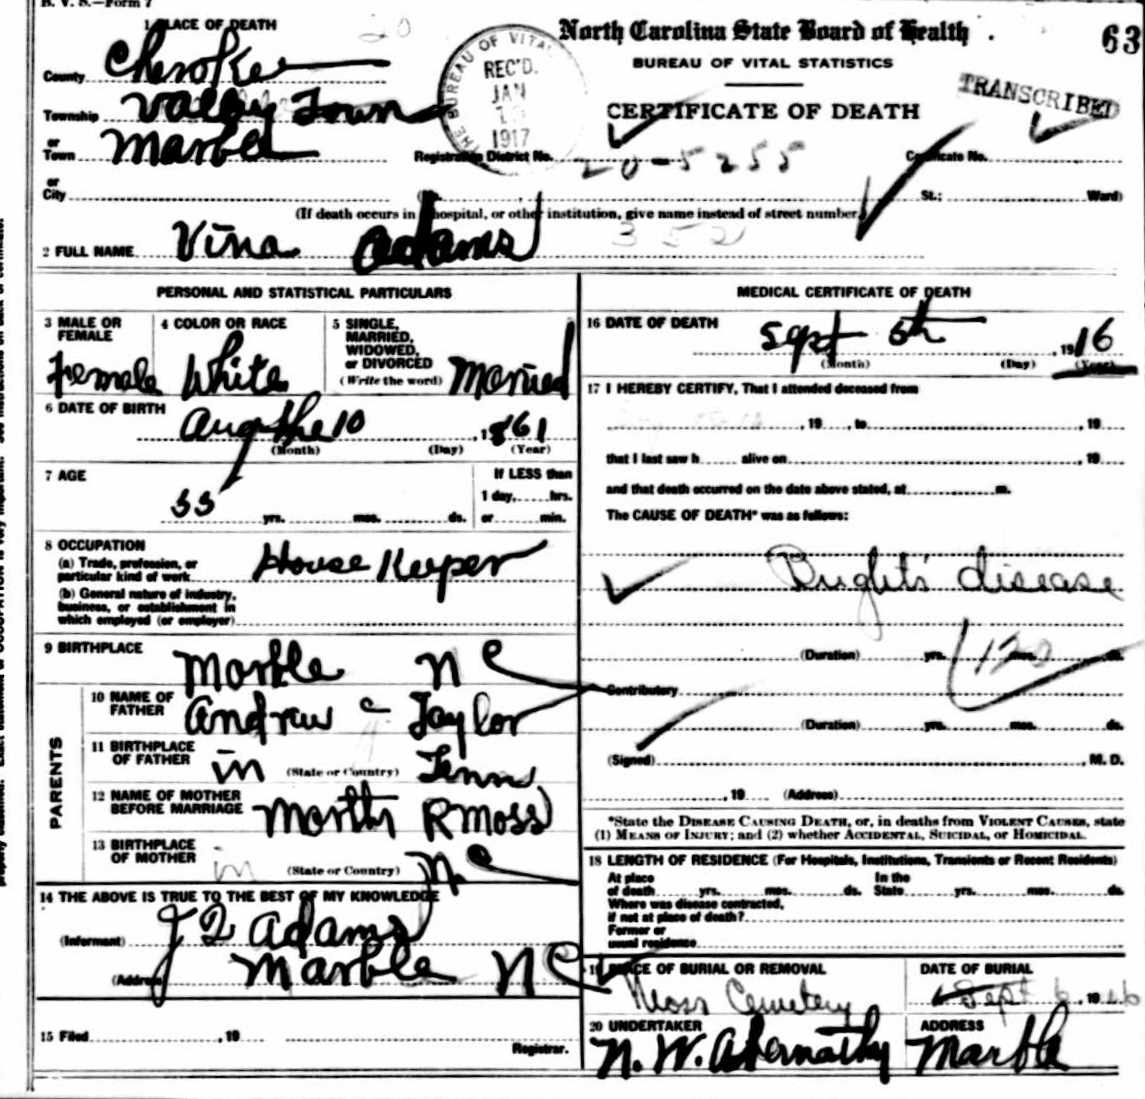 B. V. S.—Form 7
1 PLACE OF DEATH
North Carolina State Board of Health
63
County Cherokee
BUREAU OF VITAL STATISTICS
THE BUREAU OF VITAL
REC'D.
JAN
1917
TRANSCRIBED
Township Valley Town
CERTIFICATE OF DEATH
or
Town Marble
Registration District No. 20-5255
Certificate No.
or
City
St.;
Ward)
(If death occurs in hospital, or other institution, give name instead of street number.)
352
2 FULL NAME Vina Adams
PERSONAL AND STATISTICAL PARTICULARS
3 MALE OR FEMALE
Female
4 COLOR OR RACE
White
5 SINGLE,
MARRIED,
WIDOWED,
or DIVORCED
(Write the word) Married
6 DATE OF BIRTH
Aug the 10, 1861
(Month) (Day) (Year)
7 AGE
55 yrs. mos. ds.
If LESS than
1 day, hrs.
or min.
8 OCCUPATION
(a) Trade, profession, or
particular kind of work House Keeper
(b) General nature of industry,
business, or establishment in
which employed (or employer)
9 BIRTHPLACE
Marble N C
PARENTS
10 NAME OF
FATHER Andrew C Taylor
11 BIRTHPLACE
OF FATHER in (State or Country) Tenn
12 NAME OF MOTHER
BEFORE MARRIAGE Martha R Moss
13 BIRTHPLACE
OF MOTHER in (State or Country) N C
14 THE ABOVE IS TRUE TO THE BEST OF MY KNOWLEDGE
(Informant) J Q Adams
(Address) Marble N C
15 Filed , 19
Registrar.
MEDICAL CERTIFICATE OF DEATH
16 DATE OF DEATH
Sept 5th, 1916
(Month) (Day) (Year)
17 I HEREBY CERTIFY, That I attended deceased from
, 19 , to , 19
that I last saw h alive on , 19
and that death occurred on the date above stated, at m.
The CAUSE OF DEATH* was as follows:
Bright's disease
120
(Duration) yrs. mos. ds.
Contributory
(Duration) yrs. mos. ds.
(Signed) M. D.
, 19 (Address)
*State the DISEASE CAUSING DEATH, or, in deaths from VIOLENT CAUSES, state
(1) MEANS OF INJURY; and (2) whether ACCIDENTAL, SUICIDAL, or HOMICIDAL.
18 LENGTH OF RESIDENCE (For Hospitals, Institutions, Transients or Recent Residents)
At place
of death yrs. mos. ds.
In the
State yrs. mos. ds.
Where was disease contracted,
if not at place of death?
Former or
usual residence
19 PLACE OF BURIAL OR REMOVAL
Moss Cemetery
DATE OF BURIAL
Sept 6, 1916
20 UNDERTAKER
N. W. Abernathy
ADDRESS
Marble